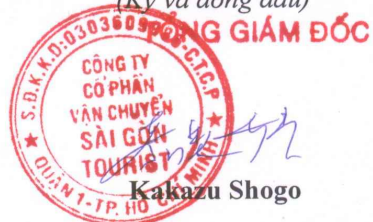 (Ký và đóng dấu)
TỔNG GIÁM ĐỐC
S.Đ.K.K.D:03036099 -C.T.C.P
CÔNG TY
CỔ PHẦN
VẬN CHUYỂN
SÀI GÒN
TOURIST
QUẬN 1-TP. HỒ CHÍ MINH
Kakazu Shogo